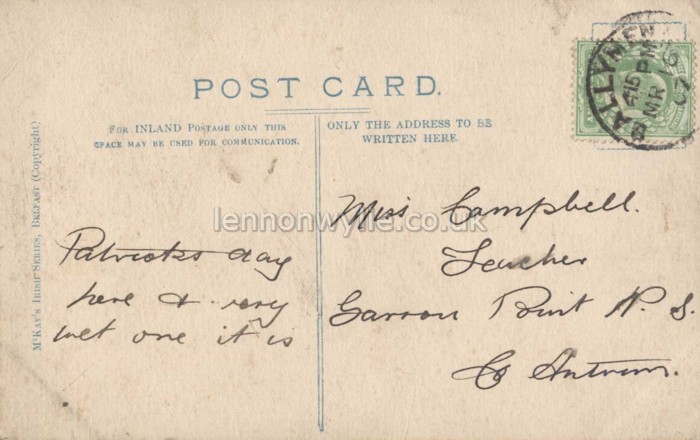 POST CARD.
FOR INLAND POSTAGE ONLY THIS
SPACE MAY BE USED FOR COMMUNICATION.
ONLY THE ADDRESS TO BE
WRITTEN HERE.
McKAY'S IRISH SERIES, BELFAST (Copyright)
BALLYMENA
4 15 PM
MR
07
lennonwylie.co.uk
Patricks day
here & very
wet one it is
Miss Campbell.
Teacher
Garron Point N. S.
Co Antrim.